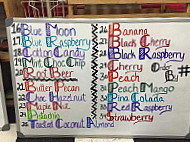 16 Blue Moon
Blue Raspberry
18 Cotton Candy
19 Mint Choc Chip
Root Beer
21 Butter Pecan
22 Choc Hazelnut
Maple Nut
24 Pistachio
25 Toasted Coconut Almond
26 Banana
Black Cherry
28 Black Raspberry
Cherry
30 Peach
Peach Mango
32 Pina Colada
Red Raspberry
34 Strawberry
Order
By
#